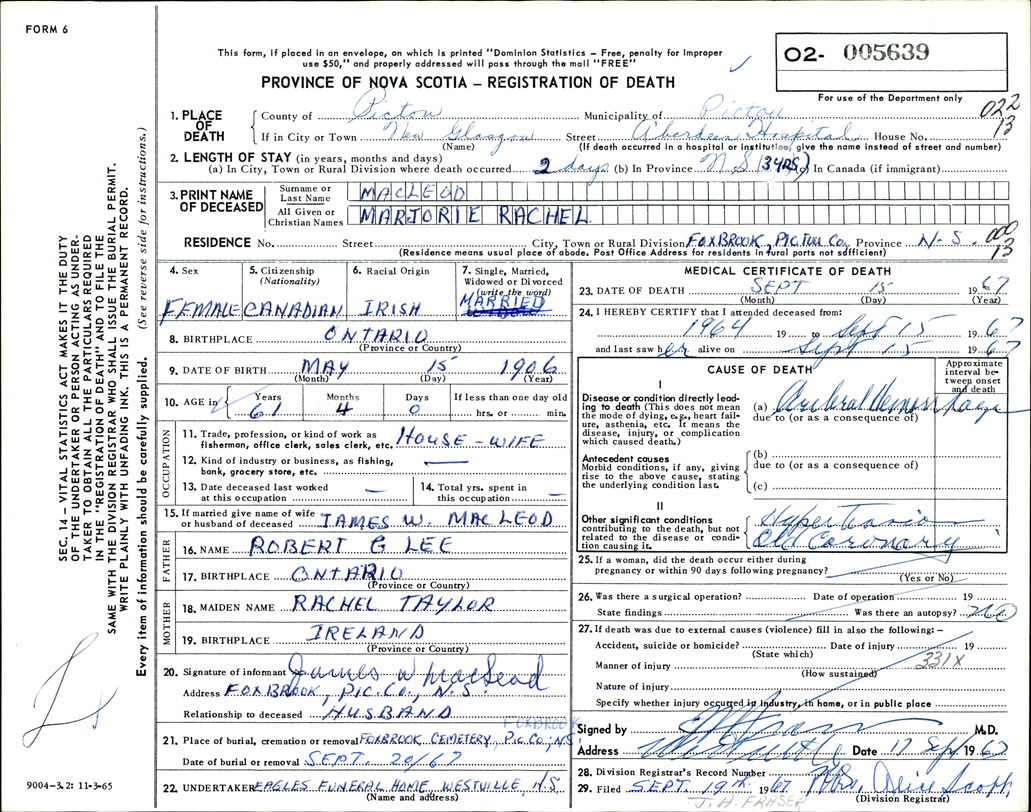 FORM 6
This form, if placed in an envelope, on which is printed "Dominion Statistics - Free, penalty for improper
use $50," and properly addressed will pass through the mail "FREE"
PROVINCE OF NOVA SCOTIA - REGISTRATION OF DEATH
O2- 005639
For use of the Department only
022
13
SEC. 14 - VITAL STATISTICS ACT MAKES IT THE DUTY
OF THE UNDERTAKER OR PERSON ACTING AS UNDER-
TAKER TO OBTAIN ALL THE PARTICULARS REQUIRED
IN THE "REGISTRATION OF DEATH" AND TO FILE THE
SAME WITH THE DIVISION REGISTRAR WHO SHALL ISSUE THE BURIAL PERMIT.
WRITE PLAINLY WITH UNFADING INK. THIS IS A PERMANENT RECORD.
Every item of information should be carefully supplied. (See reverse side for instructions.)
1. PLACE OF DEATH
County of Pictou Municipality of Pictou
If in City or Town New Glasgow Street Aberdeen Hospital House No.
(Name) (If death occurred in a hospital or institution, give the name instead of street and number)
2. LENGTH OF STAY (in years, months and days)
(a) In City, Town or Rural Division where death occurred 2 days (b) In Province N S (34RS) (c) In Canada (if immigrant)
3. PRINT NAME OF DECEASED
Surname or Last Name MACLEOD
All Given or Christian Names MARJORIE RACHEL
RESIDENCE No. Street City, Town or Rural Division FOXBROOK, PICTOU CO. Province N-S. 000
13
(Residence means usual place of abode. Post Office Address for residents in rural parts not sufficient)
4. Sex FEMALE
5. Citizenship (Nationality) CANADIAN
6. Racial Origin IRISH
7. Single, Married, Widowed or Divorced (write the word) MARRIED
8. BIRTHPLACE ONTARIO
(Province or Country)
9. DATE OF BIRTH MAY 15 1906
(Month) (Day) (Year)
10. AGE in Years 61 Months 4 Days 0 If less than one day old hrs. or min.
OCCUPATION
11. Trade, profession, or kind of work as fisherman, office clerk, sales clerk, etc. HOUSE-WIFE
12. Kind of industry or business, as fishing, bank, grocery store, etc. —
13. Date deceased last worked at this occupation —
14. Total yrs. spent in this occupation —
15. If married give name of wife or husband of deceased JAMES W. MACLEOD
FATHER
16. NAME ROBERT G LEE
17. BIRTHPLACE ONTARIO
(Province or Country)
MOTHER
18. MAIDEN NAME RACHEL TAYLOR
19. BIRTHPLACE IRELAND
(Province or Country)
20. Signature of informant James W MacLeod
Address FOXBROOK, PIC. CO., N.S.
Relationship to deceased HUSBAND
FOXBROOK
21. Place of burial, cremation or removal FOXBROOK CEMETERY, PIC. CO., N.S.
Date of burial or removal SEPT. 20/67
22. UNDERTAKER EAGLES FUNERAL HOME, WESTVILLE, N.S.
(Name and address)
MEDICAL CERTIFICATE OF DEATH
23. DATE OF DEATH SEPT 15 1967
(Month) (Day) (Year)
24. I HEREBY CERTIFY that I attended deceased from:
1964 19 to Sept 15 1967
and last saw her alive on Sept 15 1967
CAUSE OF DEATH
Approximate interval between onset and death
I
Disease or condition directly leading to death (This does not mean the mode of dying, e.g., heart failure, asthenia, etc. It means the disease, injury, or complication which caused death.)
(a) Cerebral Hemorrhage
due to (or as a consequence of)
Antecedent causes
Morbid conditions, if any, giving rise to the above cause, stating the underlying condition last.
(b)
due to (or as a consequence of)
(c)
II
Other significant conditions contributing to the death, but not related to the disease or condition causing it.
Hypertension
Old Coronary
25. If a woman, did the death occur either during pregnancy or within 90 days following pregnancy?
(Yes or No)
26. Was there a surgical operation? Date of operation 19
State findings Was there an autopsy? no
27. If death was due to external causes (violence) fill in also the following: -
Accident, suicide or homicide? Date of injury 19
(State which)
331X
Manner of injury
(How sustained)
Nature of injury
Specify whether injury occurred in industry, in home, or in public place
Signed by M.D.
Address Westville Date 17 Sept 1967
28. Division Registrar's Record Number
29. Filed SEPT. 19th 1967 Mrs. Alice
(Division Registrar)
J. H. FRASER
9004-3.2: 11-3-65